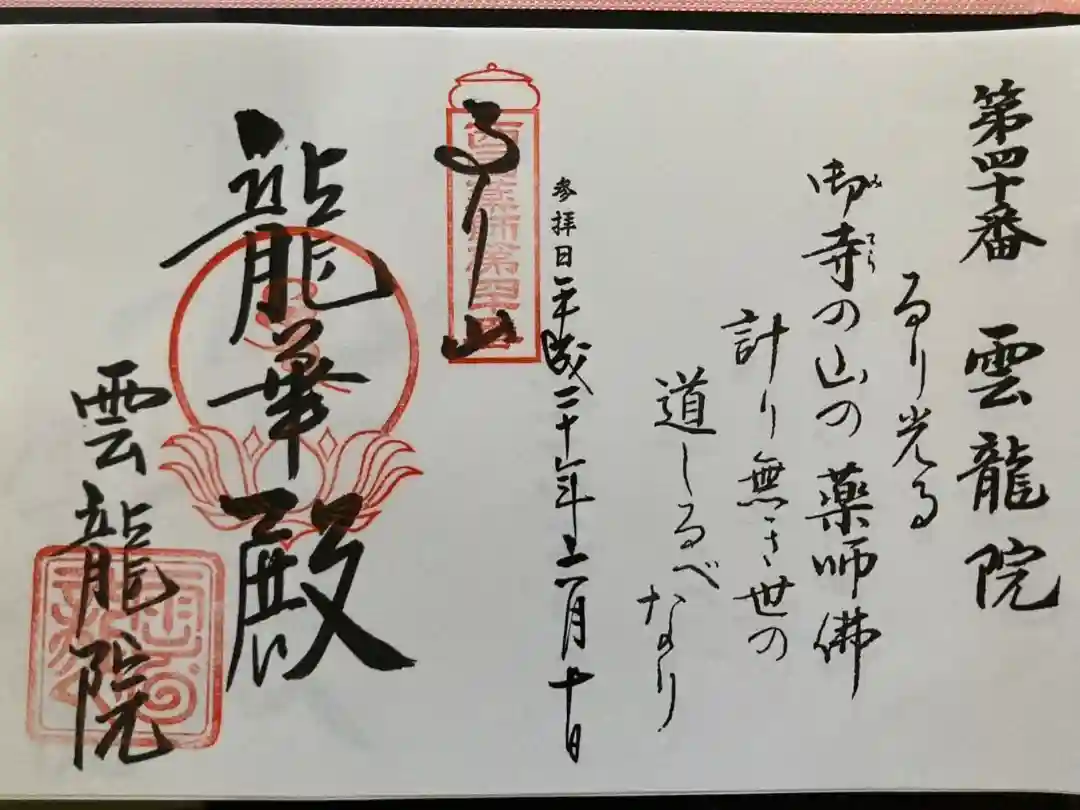 第四十番 雲龍院
るり光る
御寺の山の薬師佛
み てら
計り無き世の
道しるべなり
参拝日 平成二十年十二月十日
るり山
西国薬師第四十番
龍華殿
雲龍院